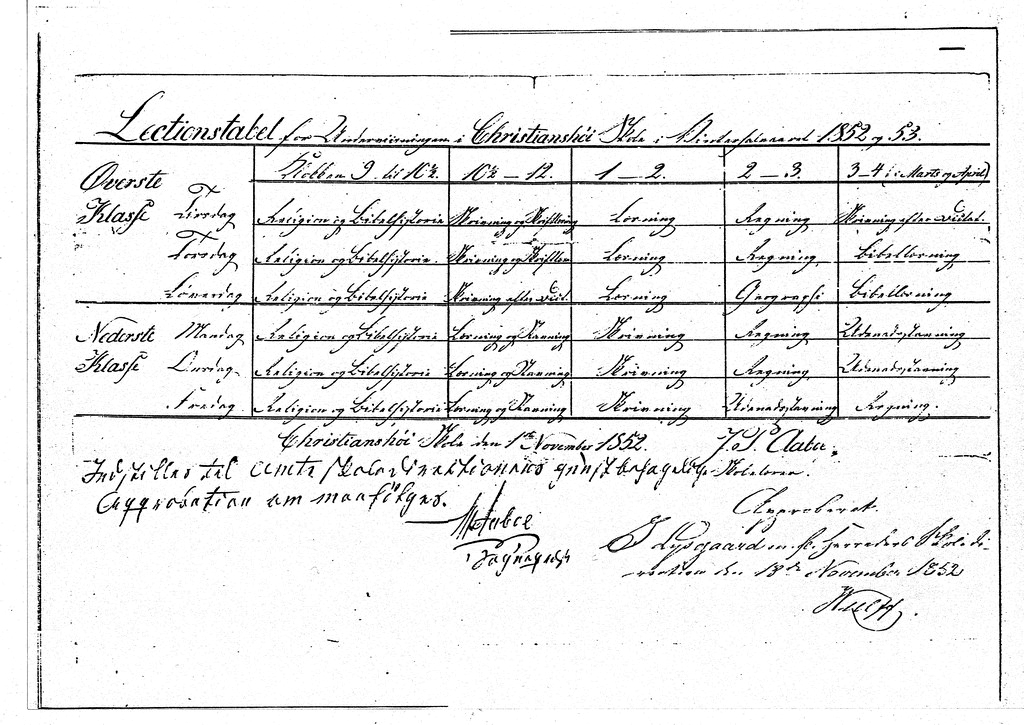 Lectionstabel for Underviisningen i Christianshöi Skole i Vinterhalvaaret 1852 og 53.
Øverste Klasse Klokken 9 til 10½ 10½ – 12. 1 – 2. 2 – 3. 3–4 (i Marts og April)
Tirsdag Religion og Bibelhistorie Skrivning og Retskrivning Læsning Regning Skrivning efter Dictat.
Torsdag Religion og Bibelhistorie. Skrivning og Læsning Regning. Bibellæsning
Løverdag Religion og Bibelhistorie Skrivning efter Dict. Læsning Geographi Bibellæsning.
Nederste Klasse Mandag Religion og Bibelhistorie Læsning og Stavning Skrivning Regning Udenadsstavning
Onsdag. Religion og Bibelhistorie Læsning og Stavning. Skrivning Regning Udenadsstavning
Fredag Religion og Bibelhistorie Læsning og Stavning Skrivning Udenadsstavning Regning.
Christianshöi Skole den 1ste November 1852.
Skolelærer.
Indstilles til Amtsskoledirektionens gunstbehagelige
Approbation
Approberet.
Lysgaard m. fl. Herreders Skoledi-
rection den 18de November 1852